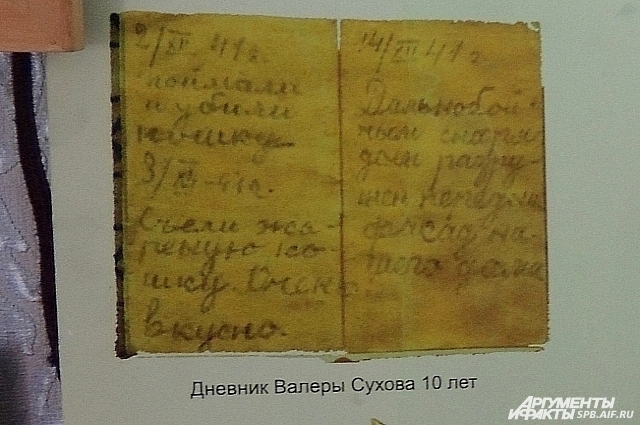 2/XII 41 г.
поймали
и убили
кошку
3/XII-41 г.
Съели жа-
реную ко-
шку. Очень
вкусно.
14/XII 41 г.
Дальнобой-
ным снаря-
дом разру-
шен передний
фасад на-
шего дома
Дневник Валеры Сухова 10 лет
АРГУМЕНТЫ
И ФАКТЫ SPB.AIF.RU